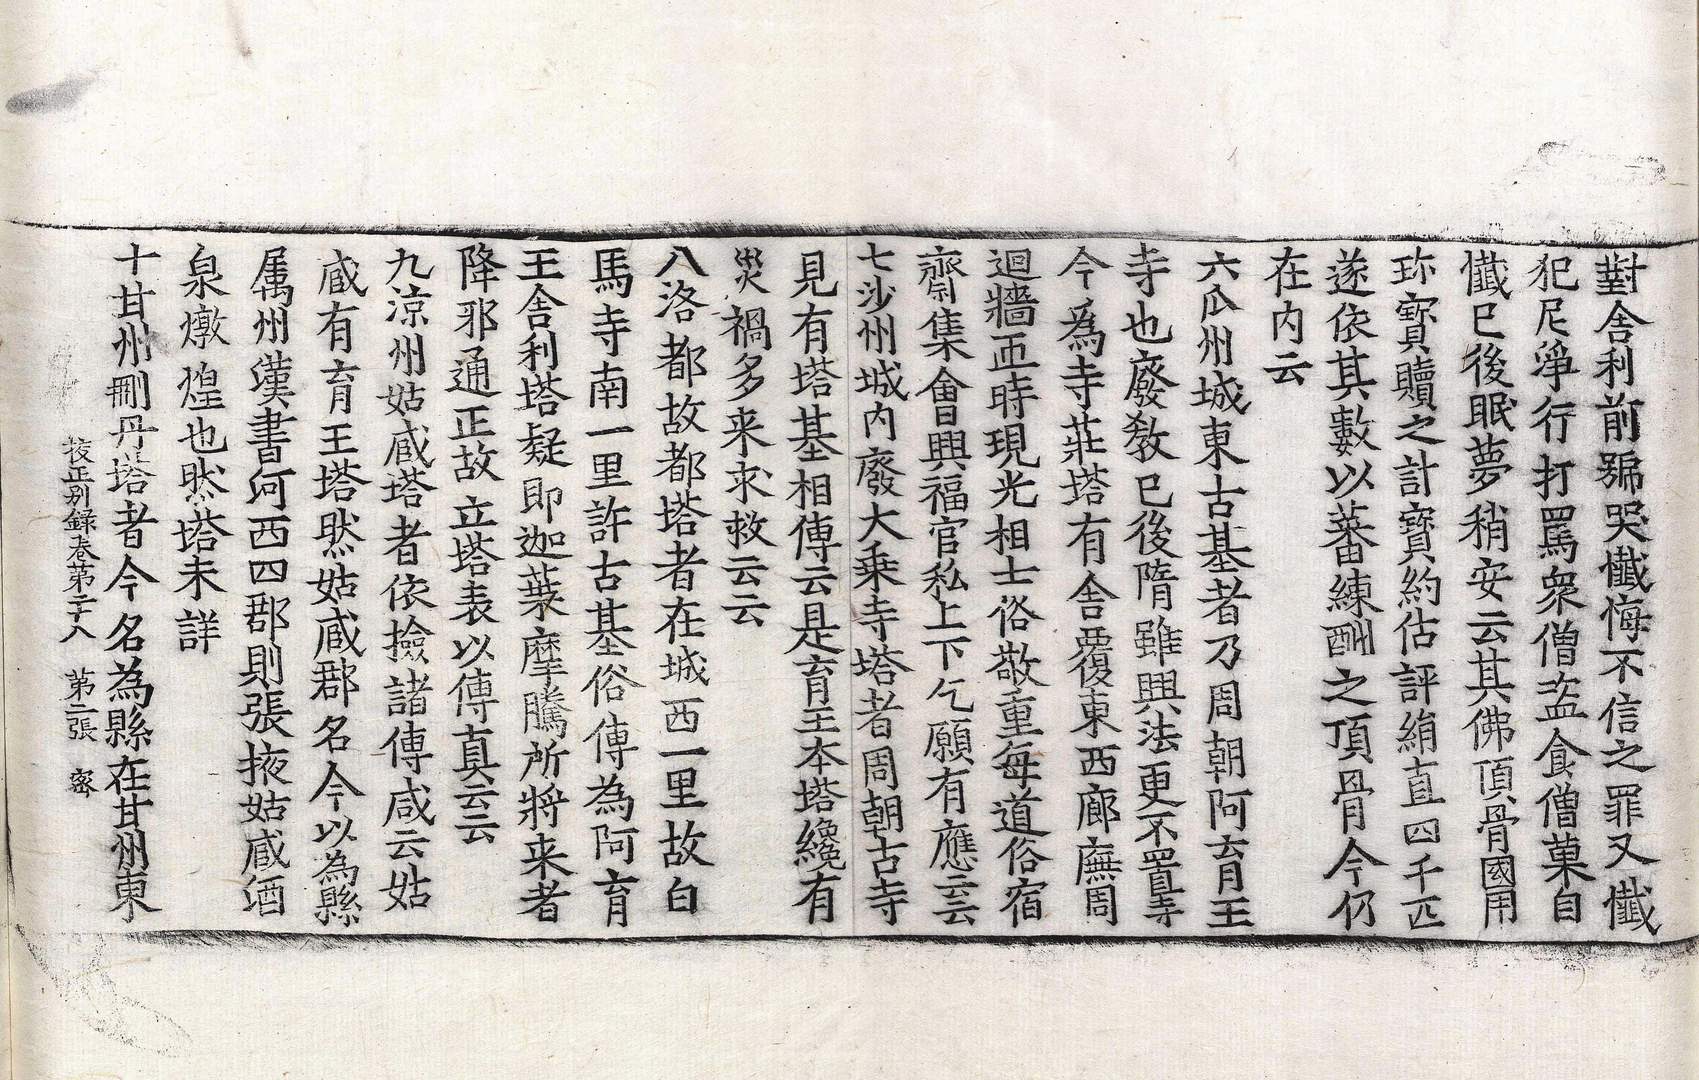 對舍利前號哭懺悔不信之罪又懺
犯尼淨行打罵衆僧盜食僧菓自
懺已後眠夢稍安云其佛頂骨國用
珎寶贖之計寶約估評絹直四千匹
遂依其數以蕃練酬之頂骨今仍
在内云
六瓜州城東古基者乃周朝阿育王
寺也廢敎已後隋雖興法更不置寺
今爲寺莊塔有舍覆東西廊廡周
迴牆帀時現光相士俗敬重每道俗宿
齋集會興福官私上下乞願有應云云
七沙州城内廢大乗寺塔者周朝古寺
見有塔基相傳云是育王本塔纔有
災禍多来求救云云
八洛都故都塔者在城西一里故白
馬寺南一里許古基俗傳為阿育
王舎利塔疑即迦葉摩騰所將来者
降邪通正故立塔表以傳真云云
九涼州姑臧塔者依撿諸傳咸云姑
臧有育王塔然姑臧郡名今以為縣
属州漢書河西四郡則張掖姑臧酒
泉燉煌也然塔未詳
十甘州刪丹塔者今名為縣在甘州東
挍正别録卷第二十八　第二張　密